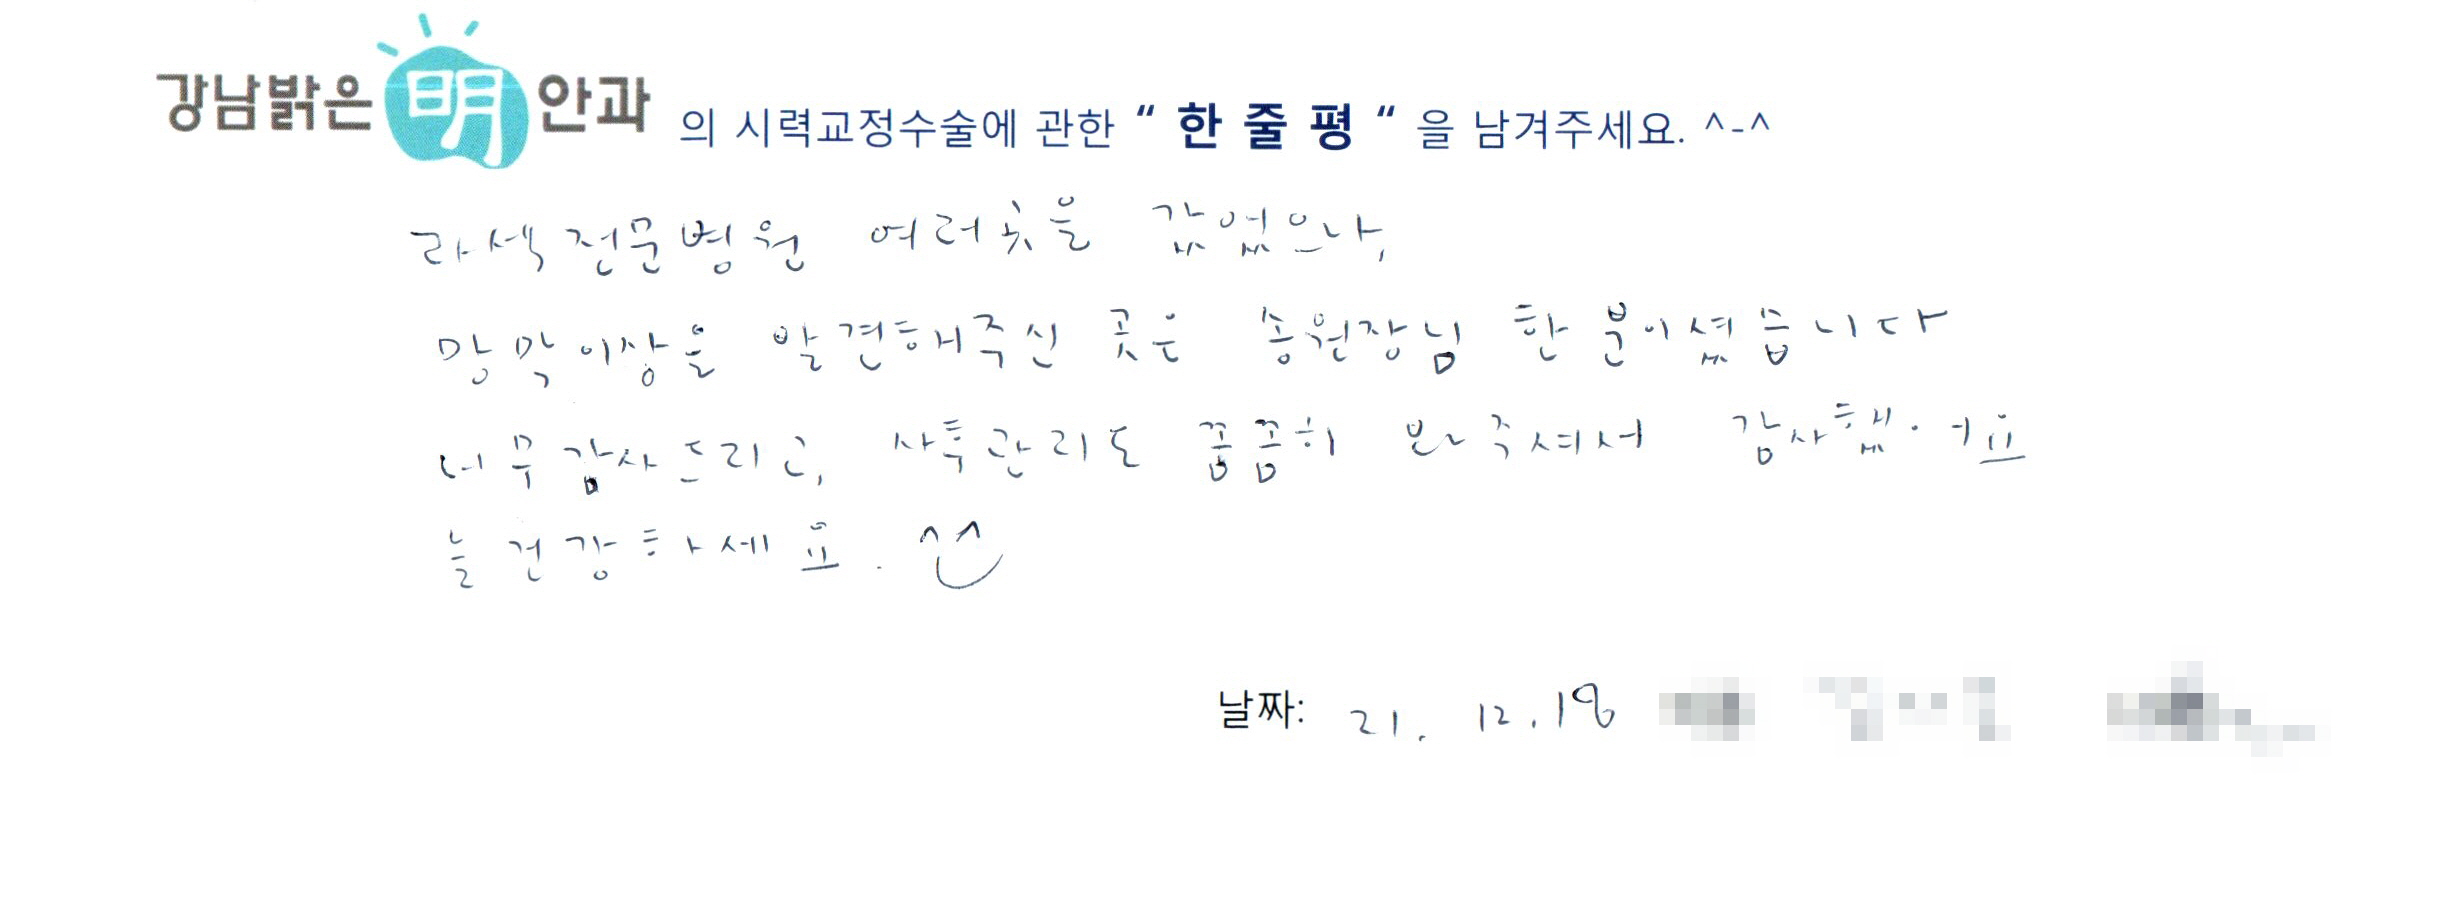 강남밝은 明 안과 의 시력교정수술에 관한 “ 한 줄 평 “ 을 남겨주세요. ^-^
라섹전문병원 여러곳을 갔었으나,
망막이상을 발견해주신 곳은 송원장님 한 분이셨습니다
너무 감사드리고, 사후관리도 꼼꼼히 봐주셔서 감사했어요
늘 건강하세요. ^^
날짜: 21. 12. 18